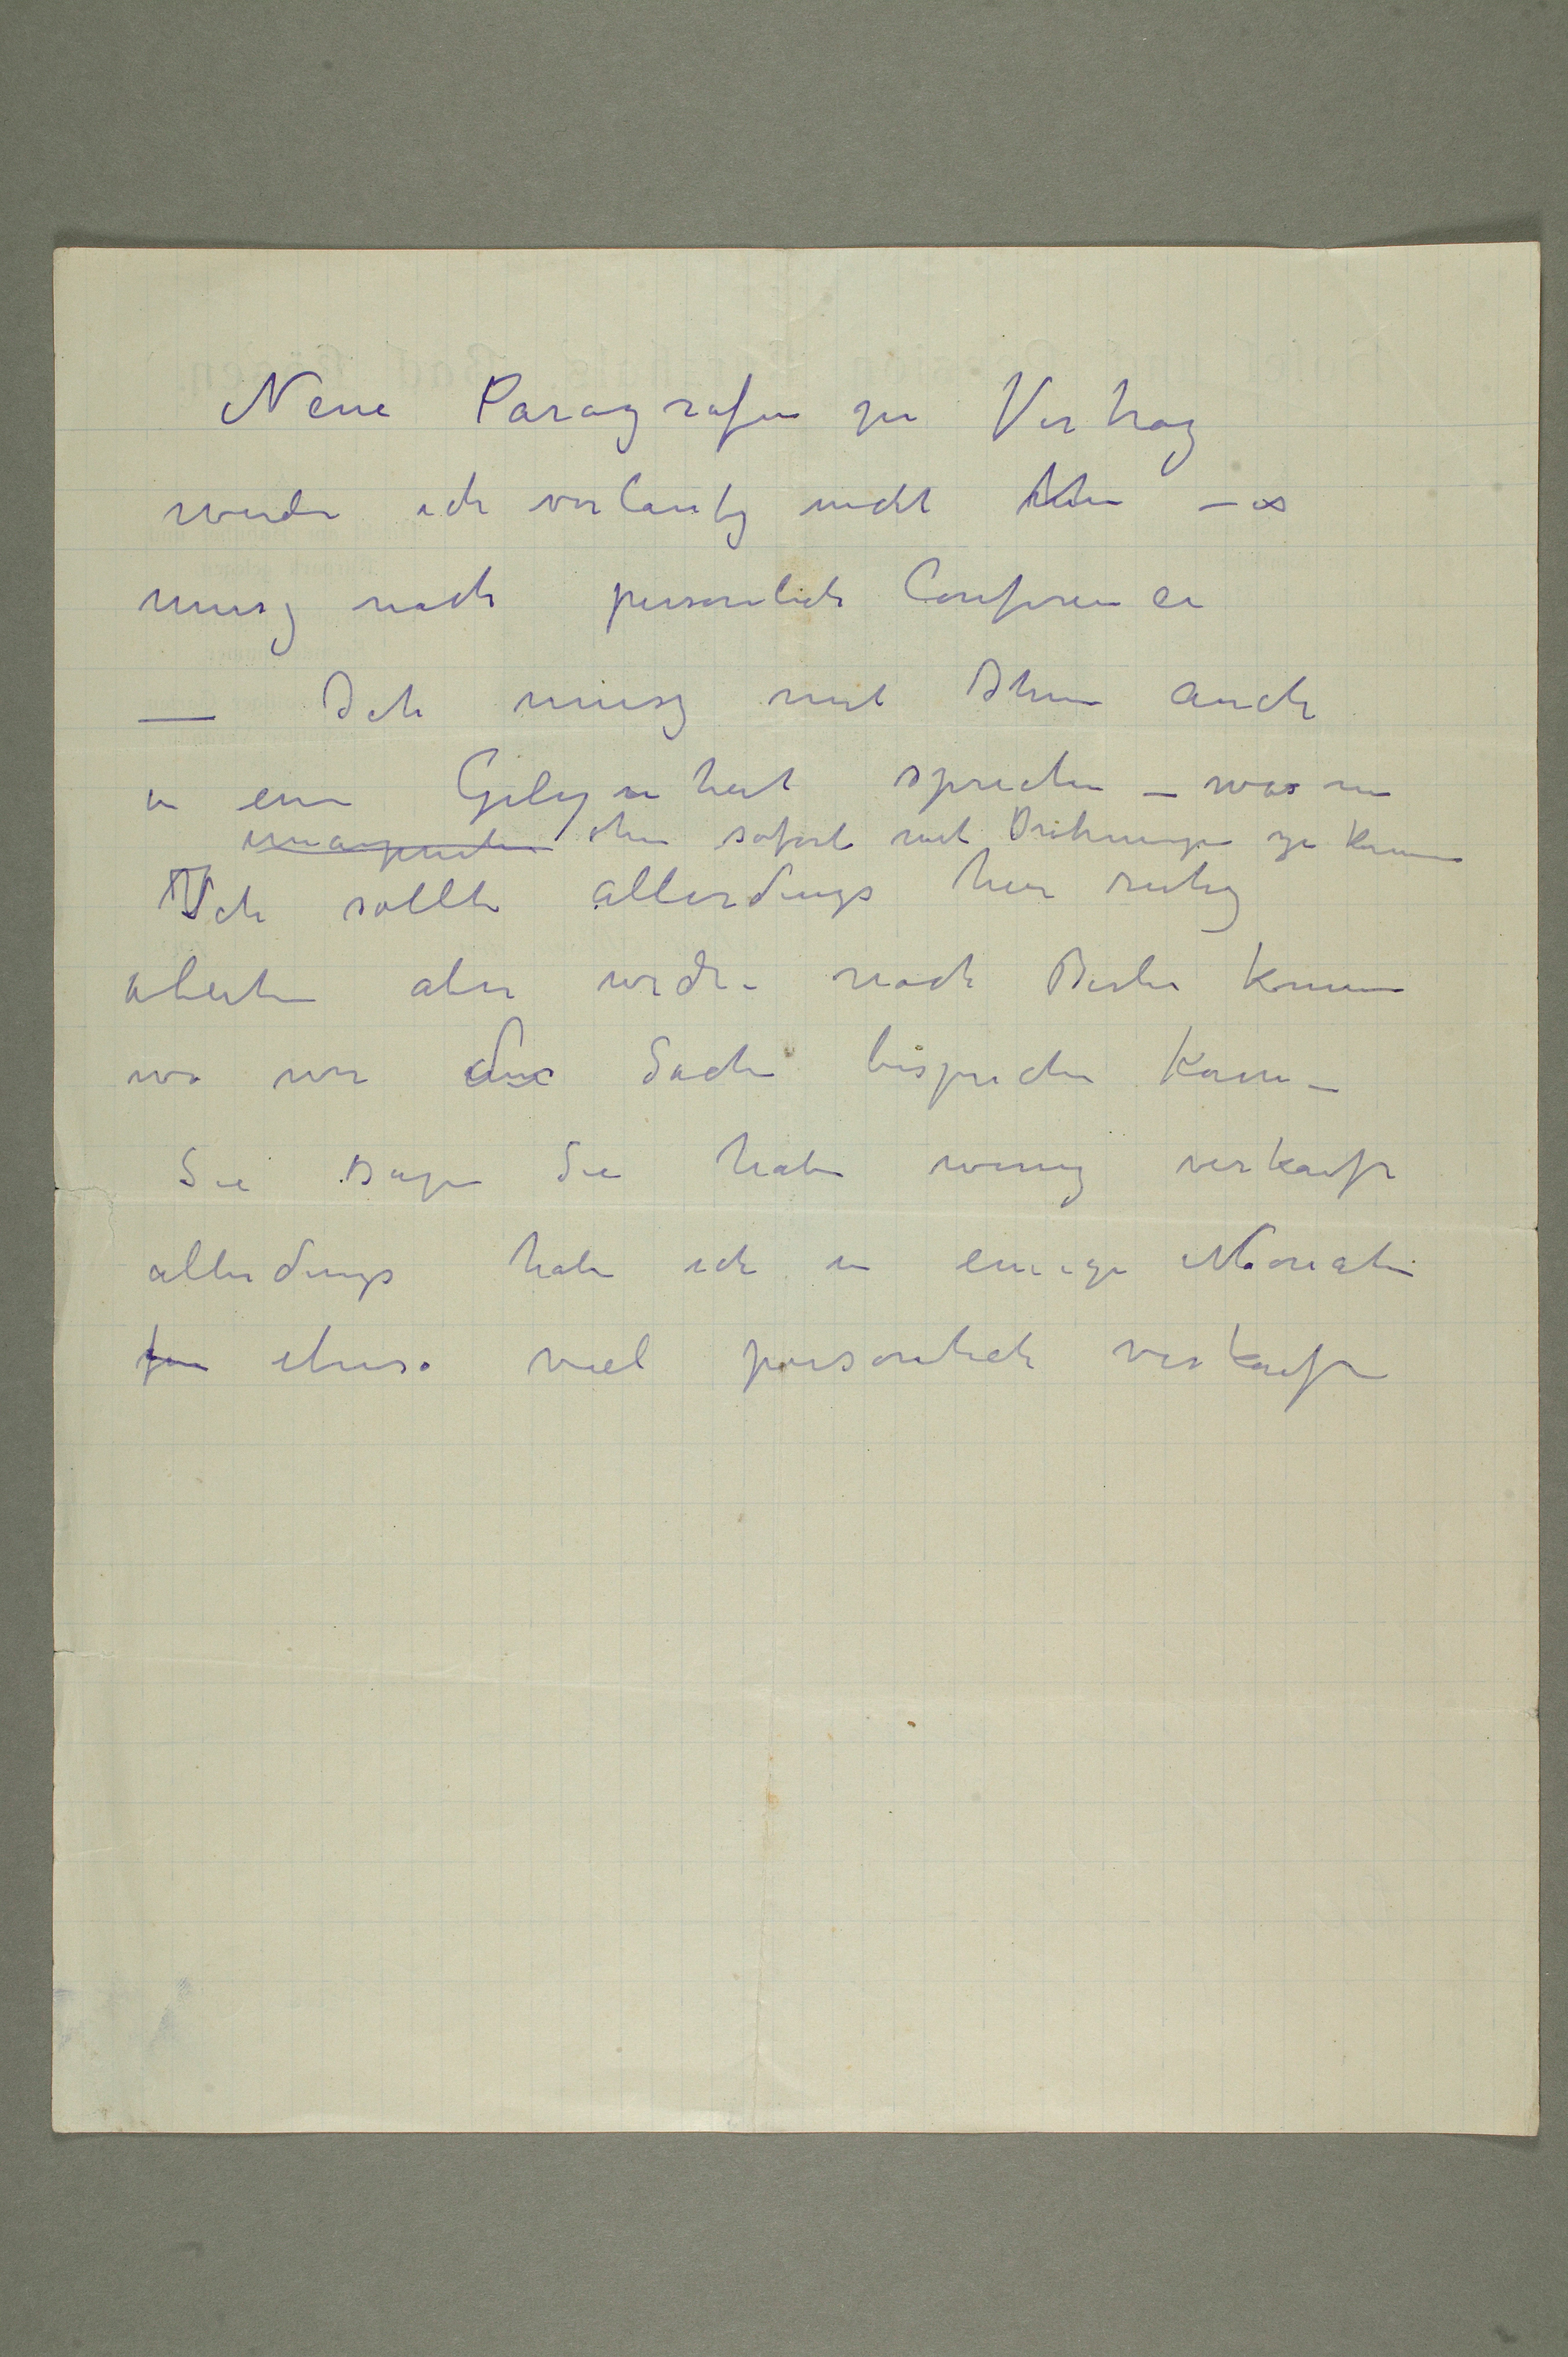 Neue Paragrafen zu Vertrag
werde ich vorlaufig nicht – es
musz nach personlich Conference
— Ich musz mit Ihnen auch
in eine Gelegenheit sprechen – warum
ohne sofort mit Drohungen zu kommen
Ich sollte allerdings hier ruhig
arbeiten aber werde nach Berlin kommen
wo wir die Sache besprechen kann –
Sie sagen Sie haben wenig verkauft
allerdings habe ich in einige Monate
ebenso viel personlich verkauft